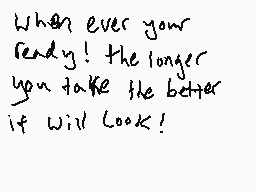 when ever your
ready! the longer
you take the better
it will look!